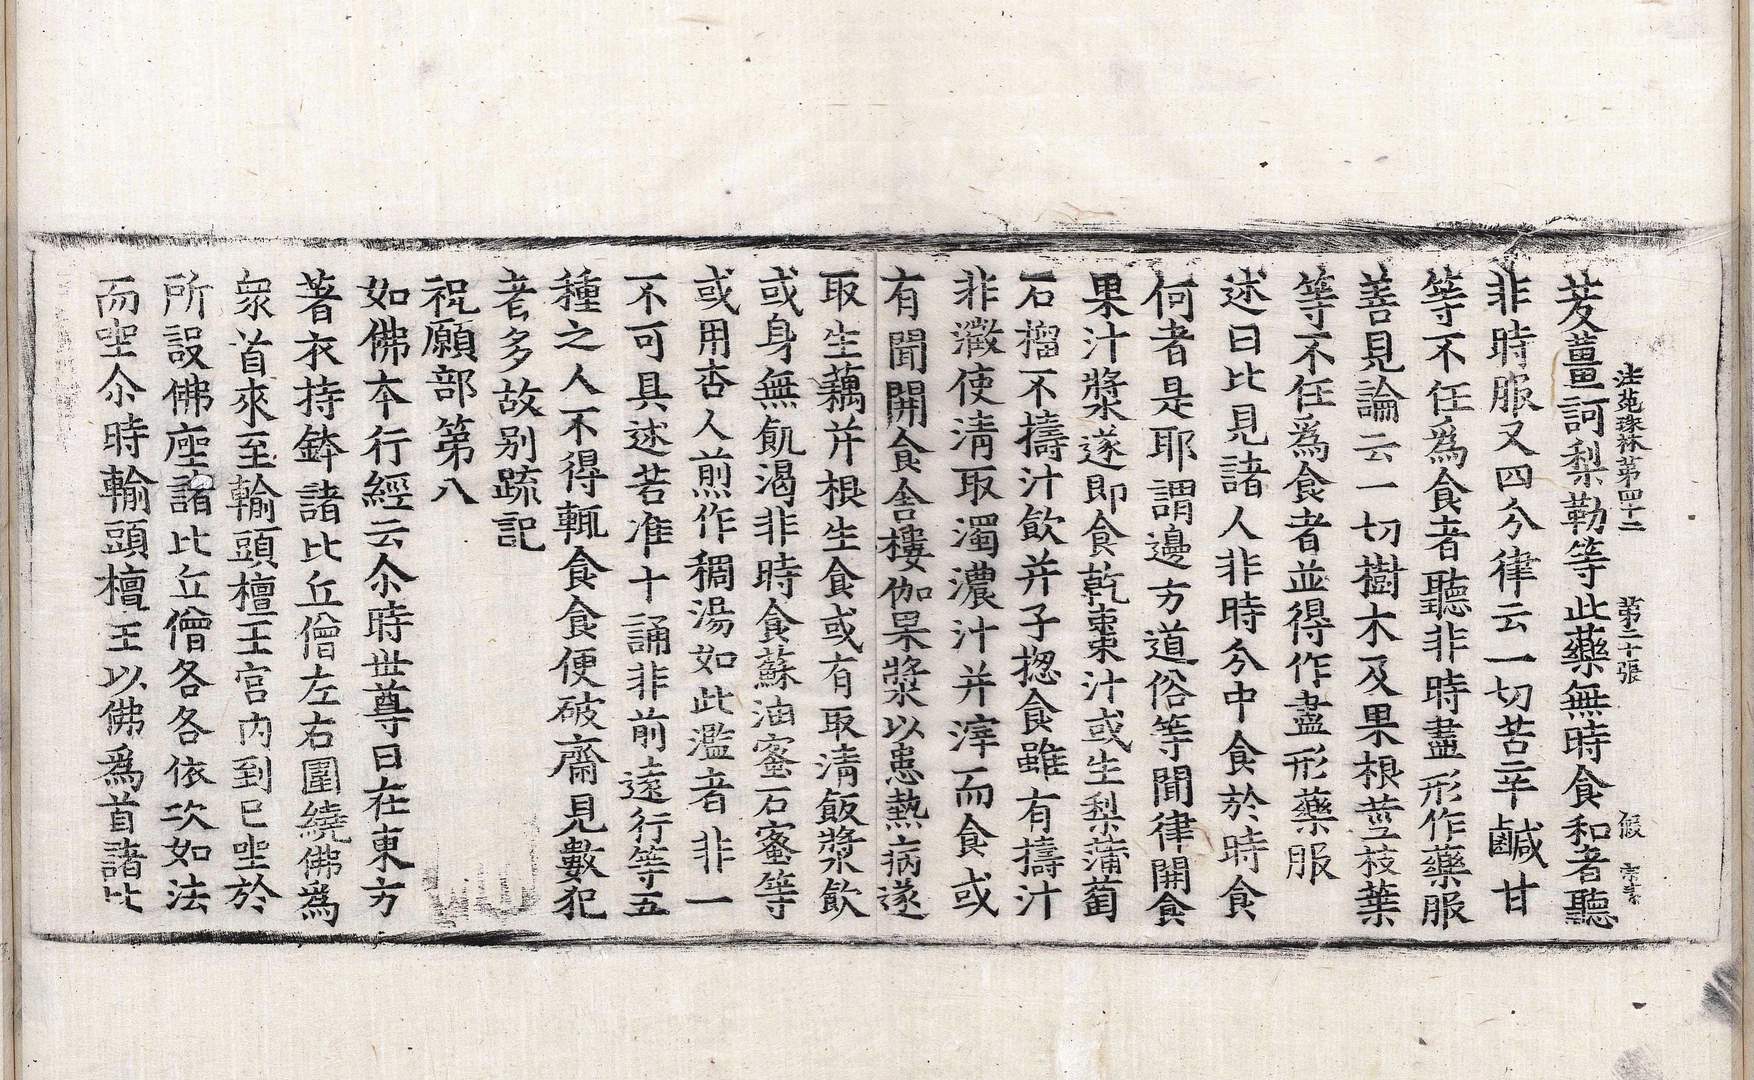 法苑珠林第四十二　第二十張　假
茇薑訶梨勒等此藥無時食和者聽
非時服又四分律云一切苦辛鹹甘
等不任爲食者聽非時盡形作藥服
善見論云一切樹木及果根莖枝葉
等不任爲食者並得作盡形藥服
述曰比見諸人非時分中食於時食
何者是耶謂邊方道俗等聞律開食
果汁漿遂即食乾棗汁或生梨蒲萄
石榴不擣汁飲并子揔食雖有擣汁
非澂使清取濁濃汁并滓而食或
有聞開食舍樓伽果漿以患熱病遂
取生藕并根生食或有取清飯漿飲
或身無飢渴非時食蘇油蜜石蜜等
或用杏人煎作稠湯如此濫者非一
不可具述若准十誦非前遠行等五
種之人不得輒食食便破齋見數犯
者多故别疏記
祝願部第八
如佛本行經云尒時世尊日在東方
著衣持鉢諸比丘僧左右圍繞佛爲
衆首來至輸頭檀王宮内到已坐於
所設佛座諸比丘僧各各依次如法
而坐尒時輸頭檀王以佛爲首諸比